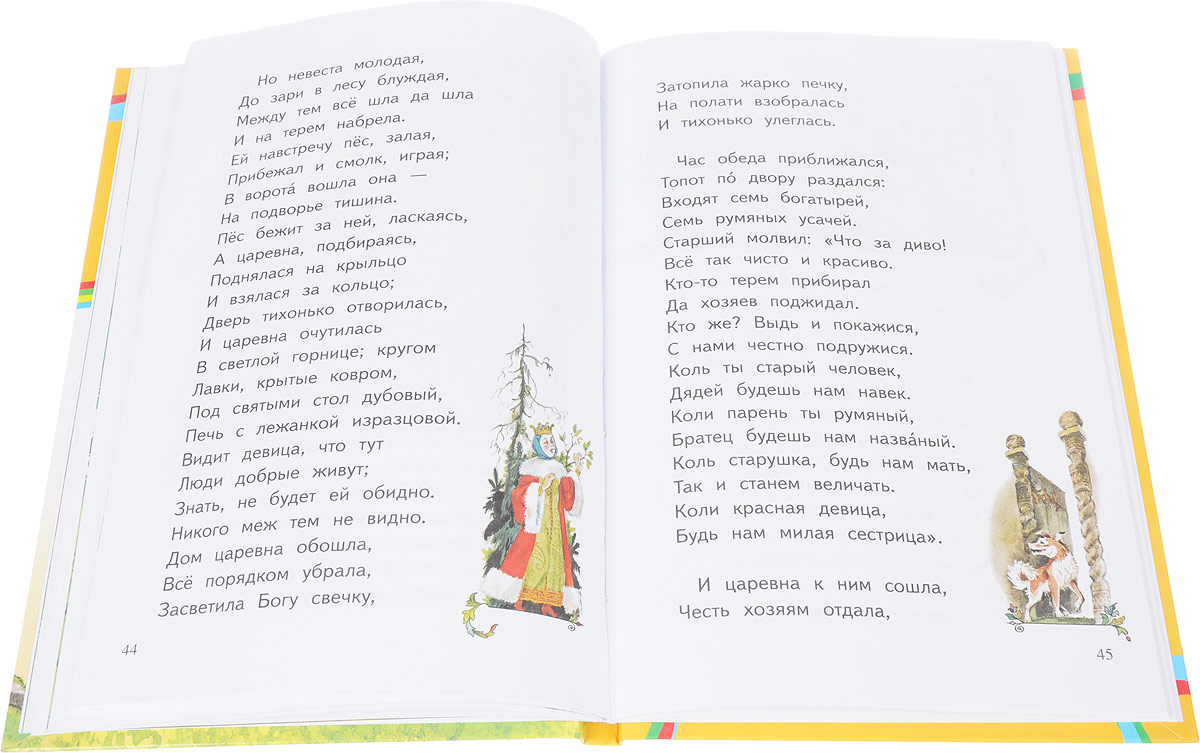 Но невеста молодая,
До зари в лесу блуждая,
Между тем всё шла да шла
И на терем набрела.
Ей навстречу пёс, залая,
Прибежал и смолк, играя;
В воротá вошла она —
На подворье тишина.
Пёс бежит за ней, ласкаясь,
А царевна, подбираясь,
Поднялася на крыльцо
И взялася за кольцо;
Дверь тихонько отворилась,
И царевна очутилась
В светлой горнице; кругом
Лавки, крытые ковром,
Под святыми стол дубовый,
Печь с лежанкой изразцовой.
Видит девица, что тут
Люди добрые живут;
Знать, не будет ей обидно.
Никого меж тем не видно.
Дом царевна обошла,
Всё порядком убрала,
Засветила Богу свечку,
44
Затопила жарко печку,
На полати взобралась
И тихонько улеглась.
Час обеда приближался,
Топот пó двору раздался:
Входят семь богатырей,
Семь румяных усачей.
Старший молвил: «Что за диво!
Всё так чисто и красиво.
Кто-то терем прибирал
Да хозяев поджидал.
Кто же? Выдь и покажися,
С нами честно подружися.
Коль ты старый человек,
Дядей будешь нам навек.
Коли парень ты румяный,
Братец будешь нам назвáный.
Коль старушка, будь нам мать,
Так и станем величать.
Коли красная девица,
Будь нам милая сестрица».
И царевна к ним сошла,
Честь хозяям отдала,
45